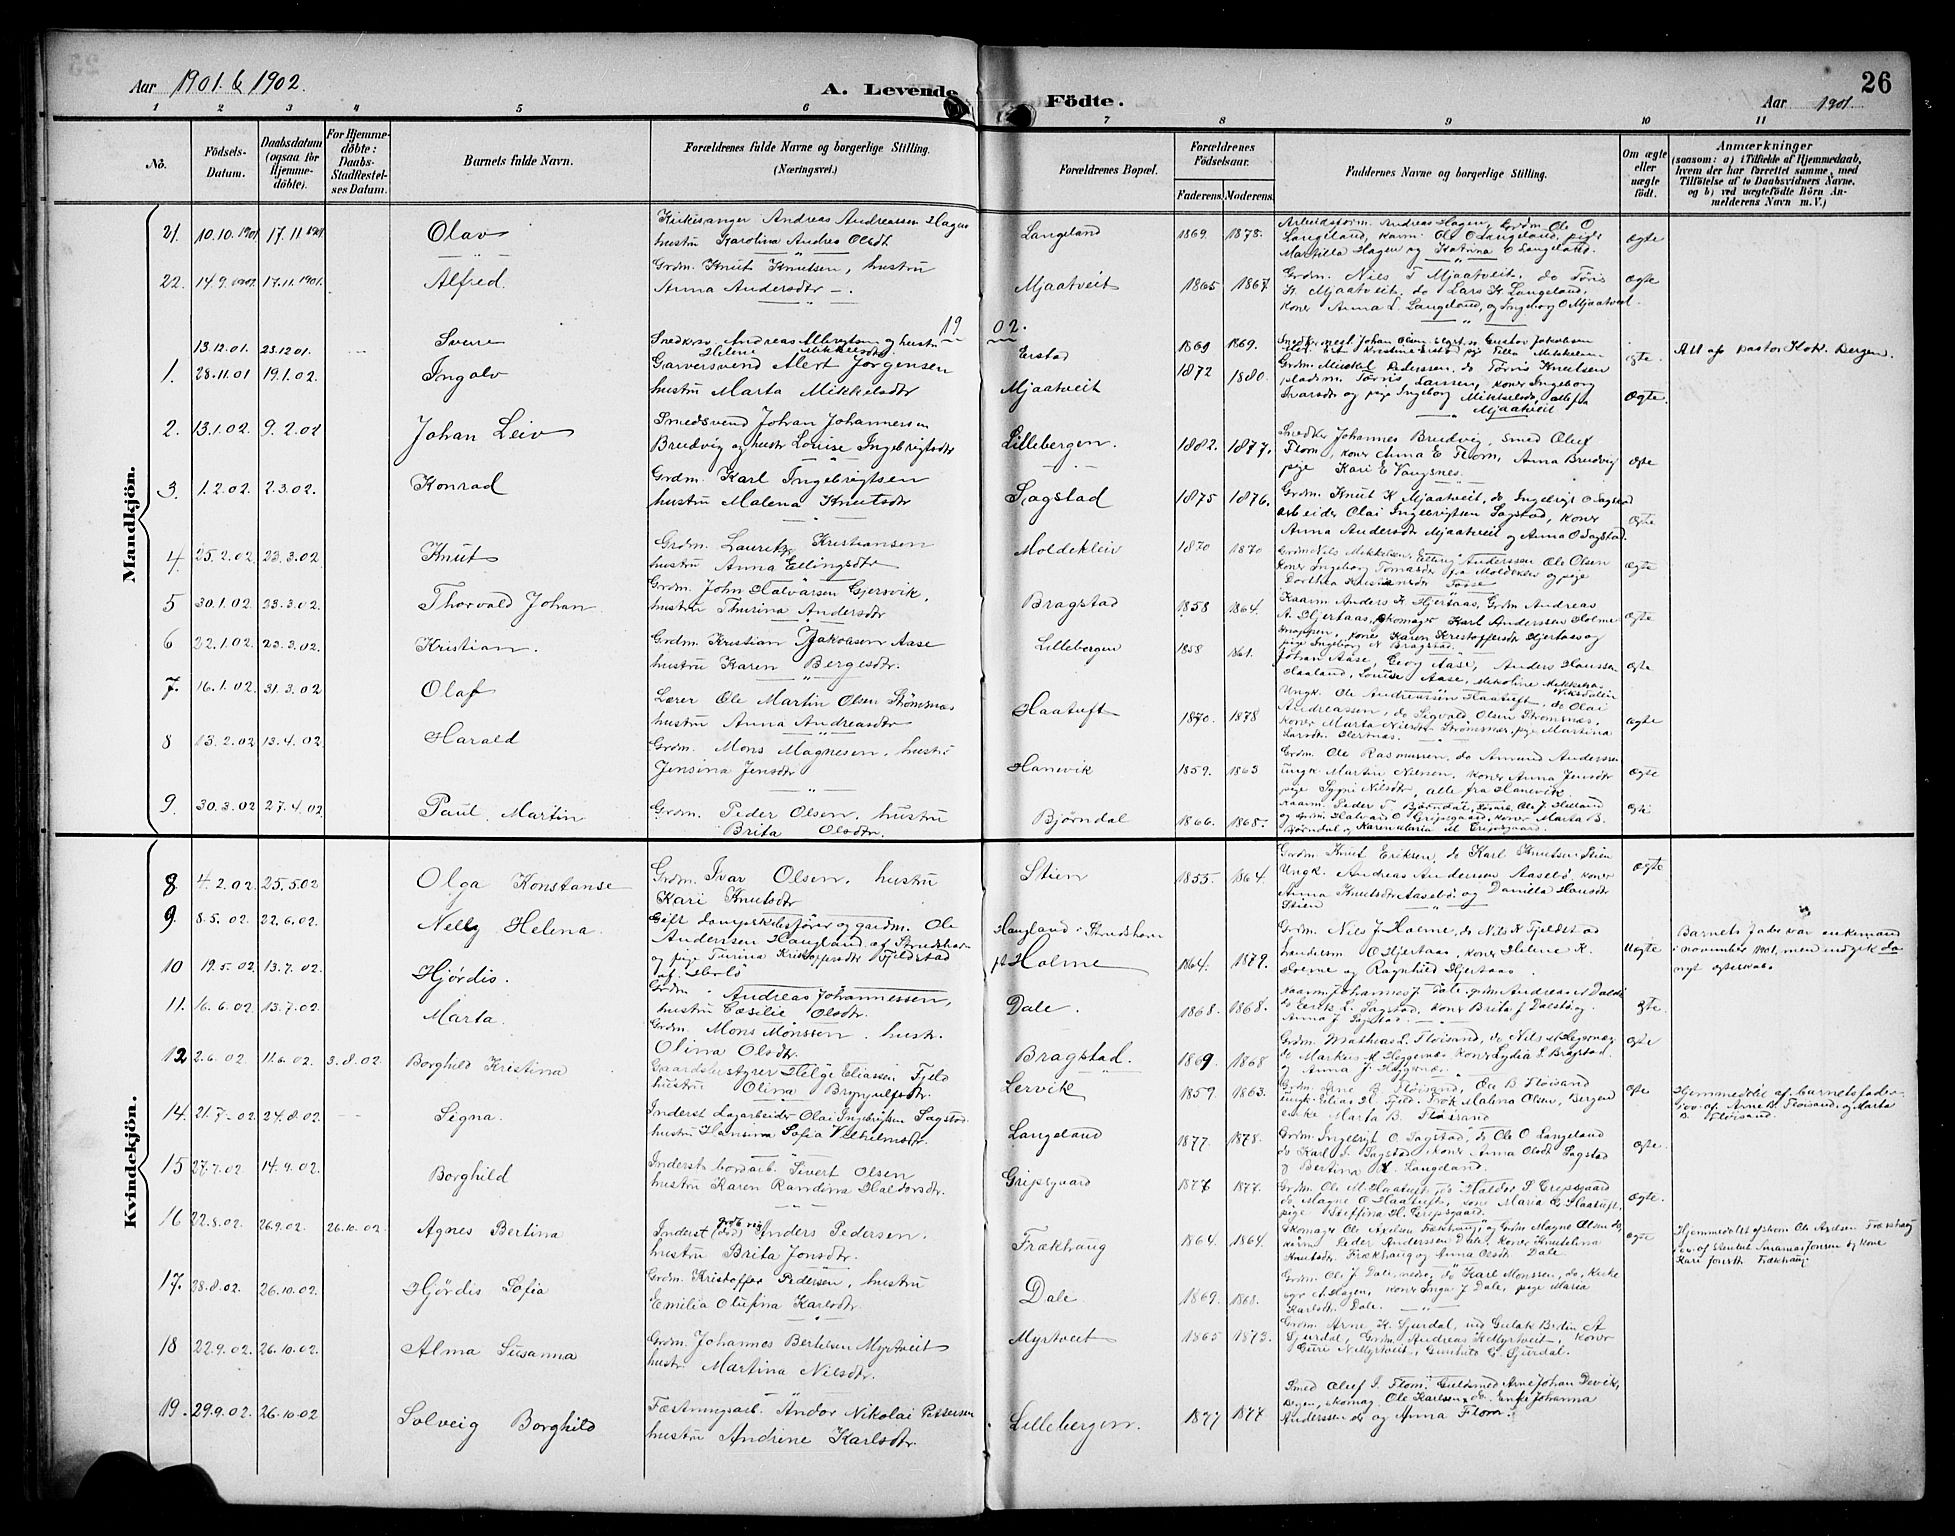 Aar 1901. & 1902.
A. Levende Födte.
26
Aar 1901.
1 2 3 4 5 6 7 8 9 10 11
No.
Födsels-Datum.
Daabsdatum (ogsaa for Hjemmedöbte).
For Hjemmedöbte: Daabs-Stadfestelses Datum.
Barnets fulde Navn.
Forældrenes fulde Navne og borgerlige Stilling. (Næringsvei.)
Forældrenes Bopæl.
Forældrenes Födselsaar.
Faderens. Moderens.
Faddernes Navne og borgerlige Stilling.
Om ægte eller uægte födt.
Anmærkninger
(saasom: a) i Tilfælde af Hjemmedaab, hvem der har forrettet samme, med Tilföielse af to Daabsvidners Navne, og b) ved uægtefödte Börn Anmelderens Navn m.V.)
Mandkjön.
21. 10.10.1901 17.11.1901 Olav
Kirkesanger Andreas Andreassen Hagen
hustru Karolina Andrea Olsdt
Langeland 1869 1878.
Langeland, kaarm. Ole O Langeland, pige
Martilla Hagen og Katrina O Langeland.
ægte
22. 14.9.1901 17.11.1901. Alfred.
Grdm. Knut Knutsen, hustru
Anna Andersdtr
Mjaatveit 1865 1867.
Grdm. Nils T Mjaatveit, do Tøris
K. Mjaatveit, do Lars K. Langeland,
koner Anna L. Langeland, og Ingeborg O Mjaatveit.
ægte
1902.
13.12.01. 23.12.01. Sverre
Erstad 1869 1869.
ægte. Alt af pastor Kok. Bergen.
1. 28.11.01 19.1.02. Ingolv
Garversvend Alert Jørgensen
hustru Marta Mikkelsdtr
Mjaatveit 1872 1880.
Grdm. Mikkel Pedersen, do Tørris Knutsen
pladsm. Tørris Larssen, koner Ingeborg
Ivarsdtr og pige Ingeborg Mikkelsdtr, alle fra
Mjaatveit
Ægte.
2. 13.1.02. 9.2.02 Johan Leiv
Smedsvend Johan Johannessen
Brudvig og hustr Louise Ingebrigtsdtr
Lillebergen. 1882. 1877.
Snedker Johannes Brudvig, smed Oluf
Flom, koner Anna E Flom, Anna Brudvig
pige Kari E Vangsnes.
ægte
3. 1.2.02. 2.3.02. Konrad
Grdm. Karl Ingebrigtsen
hustru Malena Knutsdtr
Sagstad 1875 1876.
Grdm. Knut K Mjaatveit, do Ingebrigt O Sagstad
arbeider Olai Ingebrigtsen Sagstad, koner
Anna Andersdtr Mjaatveit og Anna O Sagstad.
ægte
4 25.2.02 23.3.02 Knut
Grdm. Lauritz Kristiansen
hustru Anna Ellingsdtr
Moldekleiv 1870 1870
Grdm Nils Mikkelsen, Elling Anderssen Ole Olsen
koner Ingeborg Tomasdtr fra Moldeklev og pige
ægte
5 30.1.02. 23.3.02 Thorvald Johan
Grdm. John Halvarsen Gjersvik,
hustru Thurina Andersdtr
Bragstad 1858 1864.
Kaarm. Anders K. Hjertaas, Grdm Andreas
A. Hjertaas, skomager Karl Anderssen Holme
koner Karen Kristoffersdtr Hjertaas og
pige Ingeborg N Bragstad.
ægte
6 22.1.02. 23.3.02. Kristian.
Grdm. Kristian Jakobsen Aase
hustru Karen Bergesdtr.
Lillebergen 1858 1861.
Johan Aase, Georg Aase, Anders Hanssen
Haaland, Louise Aase, Nikoline Mikkelsen
ægte
7. 16.1.02. 31.3.02 Olaf
Lærer Ole Martin Olsen Strømsnæs
hustru Anna Andreasdtr
Haatuft 1870. 1878
Ungk. Ole Andreassen Haatuft, do Olai
Andreassen, do Sigvald Olsen Strømsnæs,
koner Marta Nilsdtr Strømsnæs, pige Martina
ægte
8 13.2.02 13.4.02. Harald
Grdm. Mons Magnesen, hustru
Jensina Jensdtr
Hanevik 1859. 1863
Grdm. Ole Rasmussen, do Amund Anderssen
ungk. Martin Nilsen, koner Anna Jensdtr
pige Sygni Nilsdtr, alle fra Hanevik.
ægte
9. 30.3.02 27.4.02 Paul Martin
Grdm. Peder Olsen, hustru
Brita Olsdtr.
Bjørndal 1866. 1865.
Kaarm. Peder T. Bjørndal, Ole J Helland
og Grdm. Halvar O Gripsgaard, koner Marta B.
Bjørndal og Karen Maria M Gripsgaard.
ægte
Kvindekjön.
8 4.2.02. 25.5.02 Olga Konstanse
Grdm. Ivar Olsen, hustru
Kari Knutsdtr
Stien 1855. 1864.
Grdm. Knut Eriksen, do Karl Knutsen Stien
Ungk. Andreas Andersen Aasebø koner
Anna Knutsdtr Aasebø og Danilla Hansdtr
Stien
Ægte
9. 8.5.02. 22.6.02. Nelly Helena.
Gift dampskibsfører og gaardm. Ole
Anderssen Haugland af Strudshavn
og pige Turina Kristoffersdtr Fjeldstad
Haugland i Strudshavn
pt Holme 1864. 1879.
Grdm. Nils J Holme, do Nils K Fjeldstad
landersm. O Hjertaas, koner Helene K.
Holme og Ragnhild Hjertaas.
Uægte
Barnets fader var enkemand
i november 1901, men indgik da
nyt ægteskab.
10 19.5.02 13.7.02 Hjørdis.
Grdm. Andreas Johannessen,
hustru Cæsilie Olsdtr.
Dale. 1868. 1868.
Kaarm. Johannes J. Dale, grdm Andreas N Dale
do Eerik L. Sagstad, koner Brita J Dalstø og
Anna J Sagstad.
ægte.
11. 16.6.02 13.7.02 Marta.
Grdm. Mons Monssen. hustr.
Olina Olsdtr.
Bragstad. 1869. 1868
Grdm. Mathias L. Fløisand, do Nils M Heggernæs
do Markus M. Heggernæs koner Lydia L Bragstad.
og Anna J. Heggernæs.
ægte
12 2.6.02. 11.6.02 3.8.02. Borghild Kristina
Gaardsbestyrer Helge Eliassen Fjeld
hustru Olina Brynjulfsdtr.
Lervik 1859. 1863.
Grdm. Arne B. Fløisand, Ole B Fløisand
ungk. Elias H. Fjeld. Frøk Malena Olsen, Bergen
enke Marta B. Fløisand
ægte
Hjemmedöbt af barnets fader
Gov. af Arne B. Fløisand, og Marta
B. Fløisand.
14. 21.7.02. 24.8.02. Signa.
Inderst Lagarbeider Olai Ingebrigtsen Sagstad
hustru Hansina Sofia Vilhelmsdtr.
Langeland 1877. 1878.
Grdm. Ingebrigt O. Sagstad, do Ole O Langeland
do Karl I. Sagstad, koner Anna Olsdt Sagstad
og Bertina K. Langeland.
ægte
15 27.7.02. 14.9.02. Borghild
Inderst bordarb. Sivert Olsen
hustru Karen Randina Haldorsdtr.
Gripsgaard 1877 1877.
Grdm. Ole M. Haatuft, do Haldor S Gripsgaard
do Magne O Haatuft, kone Maria G Haatuft,
pige Steffina H. Gripsgaard.
ægte.
16 22.8.02. 26.9.02. 26.10.02. Agnes Bertina
Inderst Anders Pedersen.
hustru Brita Jonsdtr.
Frækhaug 1864. 1864.
Skomager Ole Axelsen Frækhaug, og Grdm Magne Olsen do,
kaarm Peder Anderssen Dale. koner Knutelina
Knutsdtr. Frækhaug og Anna Olsdtr Dale.
ægte
17. 28.8.02. 26.10.02 Hjørdis Sofia
Grdm. Kristoffer Pedersen, hustru
Emilia Olufina Karlsdtr.
Dale. 1869. 1868.
Grdm. Ole J Dale, nedre, do Karl Monssen, do, Kirke
A. Hagen, koner Inga J Dale, pige Maria
Karlsdtr. Dale.
18 22.9.02 26.10.02 Alma Susanna
Grdm. Johannes Bertelsen Myrtveit
hustr. Martina Nilsdtr.
Myrtveit 1865 1873.
Grdm. Arne K. Gjurdal, ind Gulak Bertin A
Gjurdal, Grdm. Andreas K Myrtveit, koner
Guri N Myrtveit, Gunhild G. Gjurdal.
19. 29.9.02. 26.10.02 Solveig Borghild
Fæstningsarb. Andor Nikolai Pettersen
hustru Andrine Karlsdtr.
Lillebergen. 1877 1877
Smed Oluf I. Flom, Guldsmed Arne Johan Devik,
Bergen, skomag. Ole Karlsen, do. Enke Johanna
Anderssen do og Anna Flom.